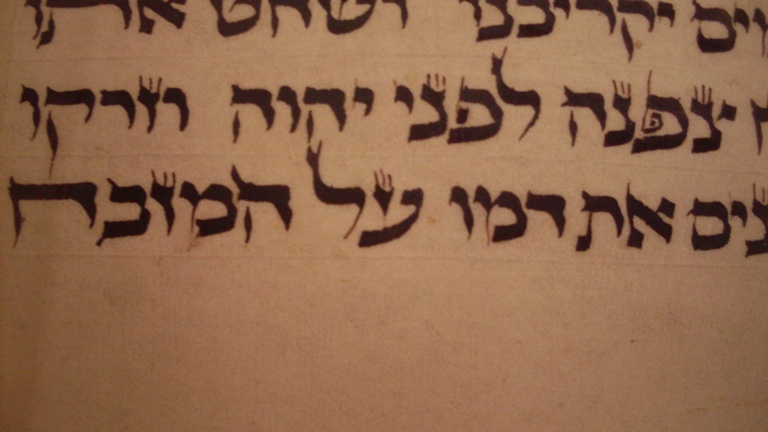 יקריבנו ושחט אתו
צפנה לפני יהוה וזרקו
את דמו על המזבח